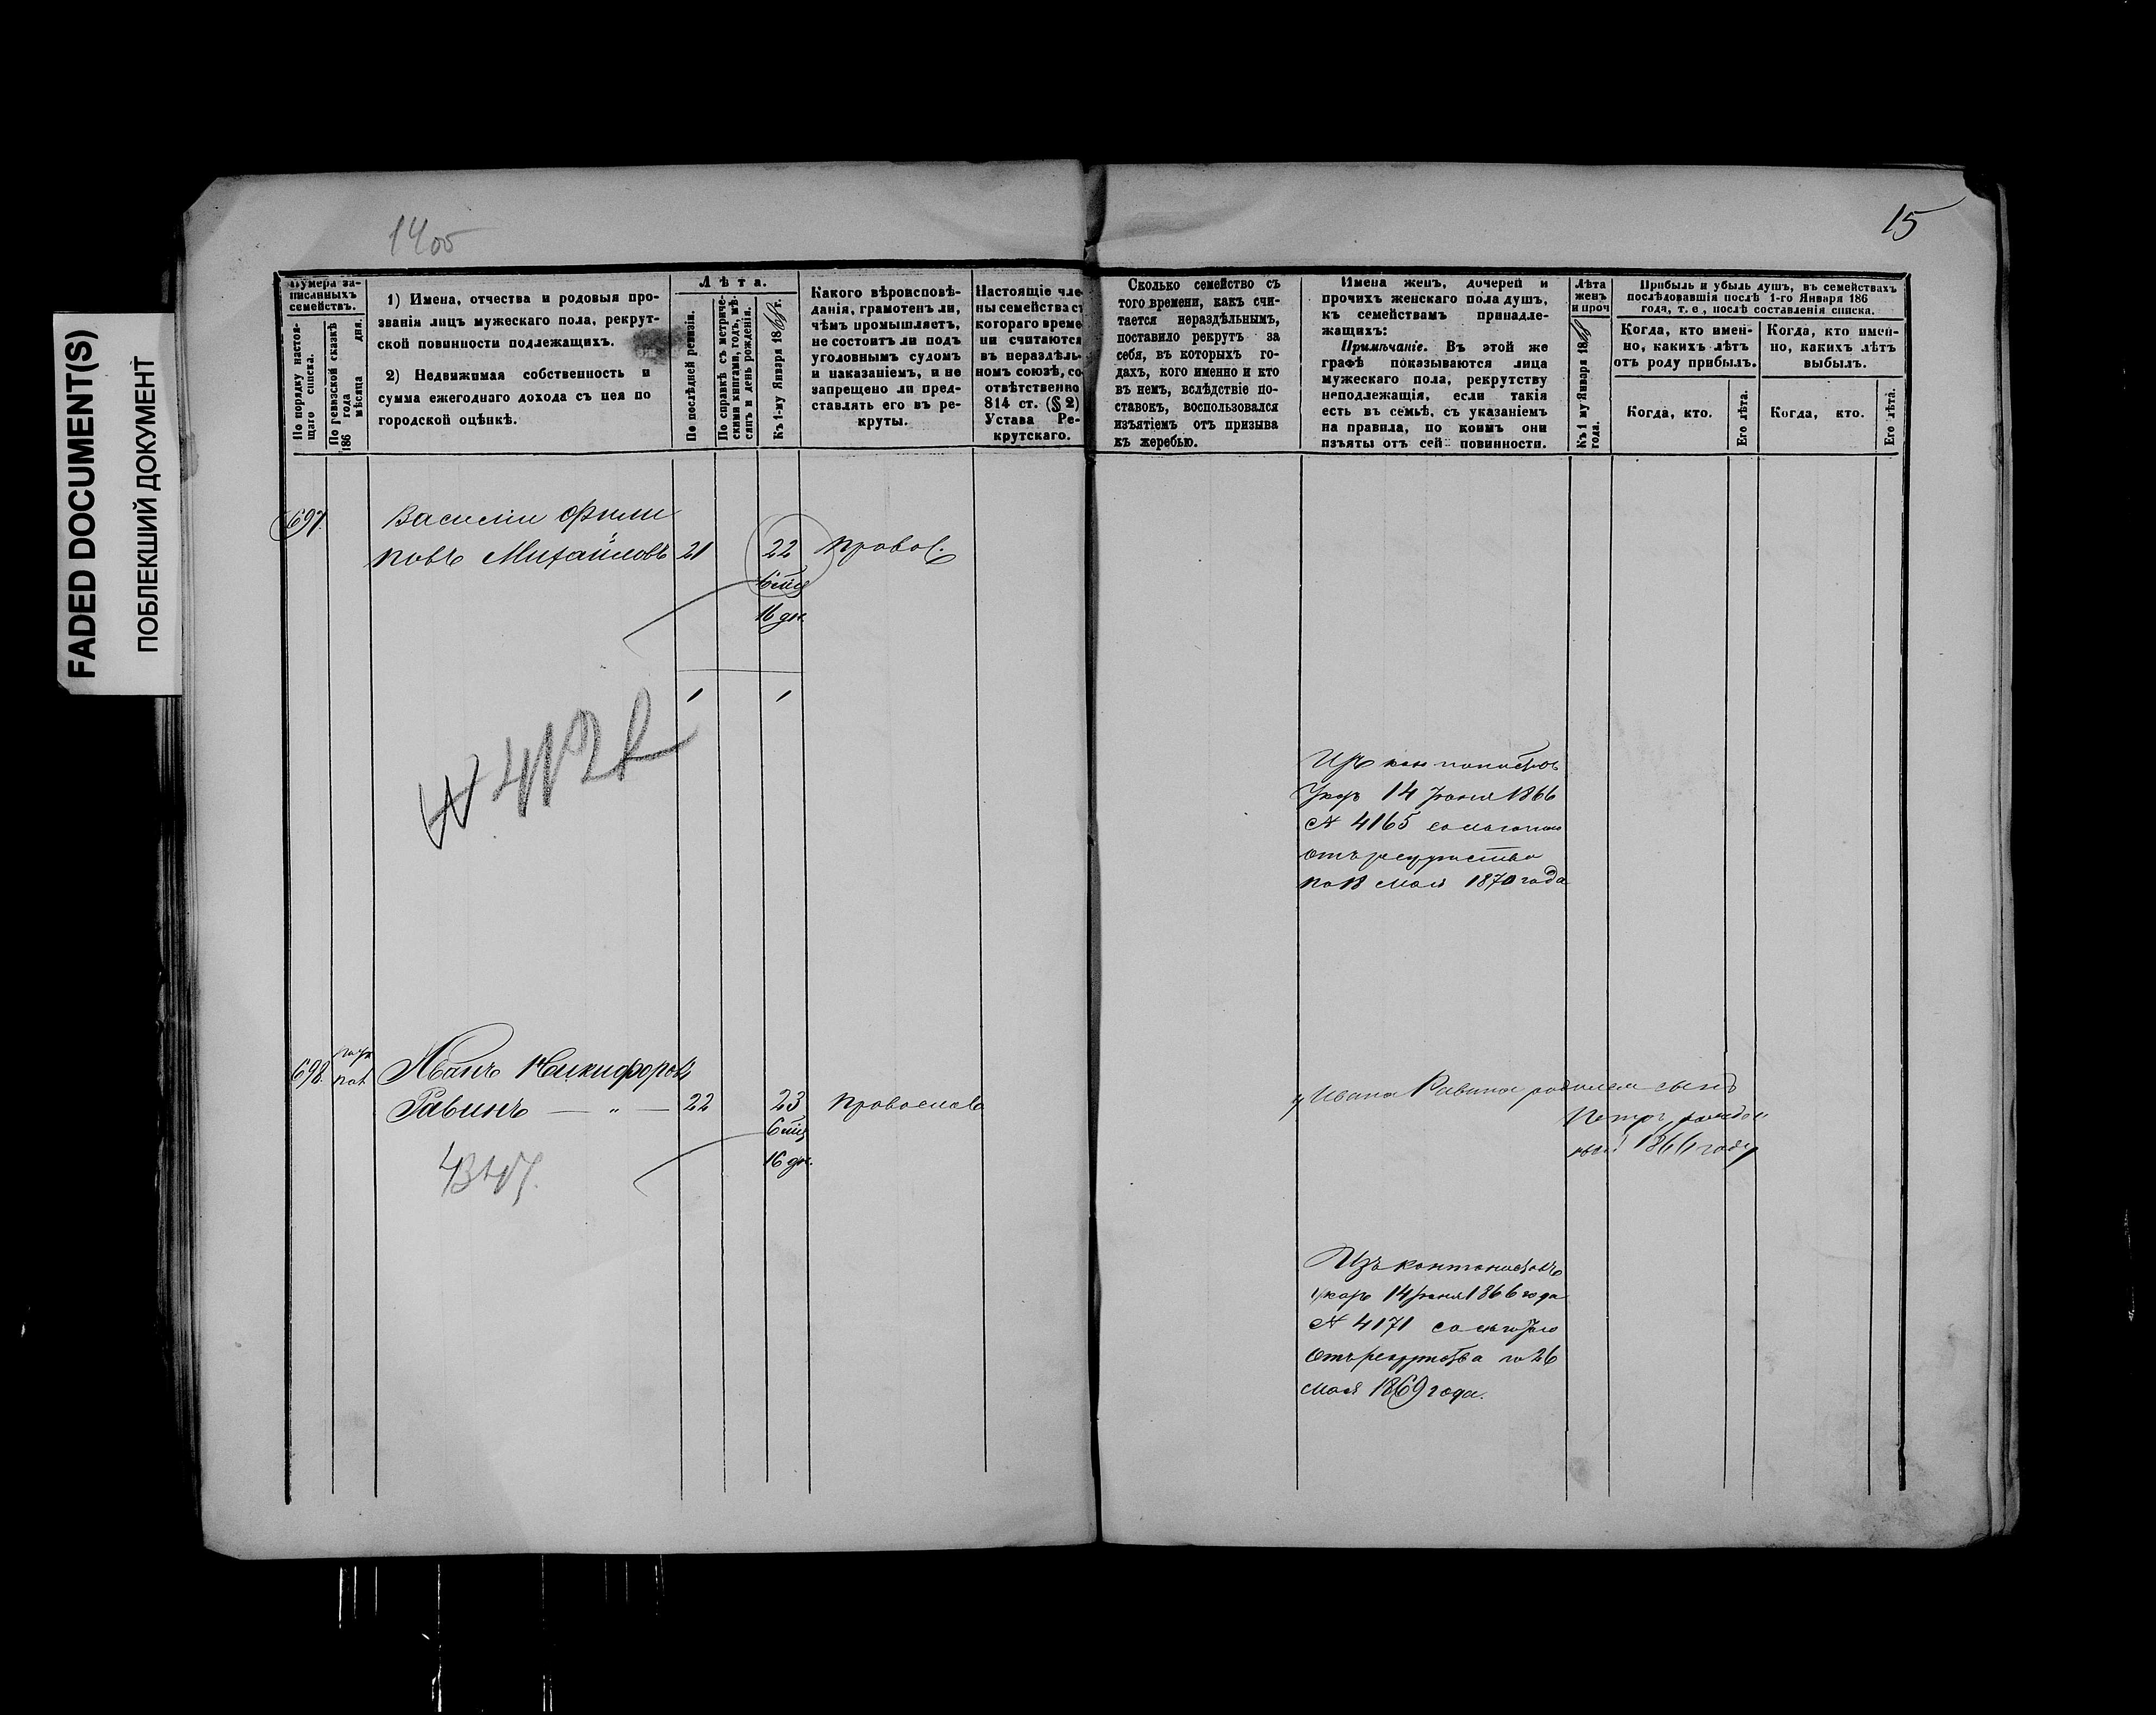 FADED DOCUMENT(S)
ПОБЛЕКШИЙ ДОКУМЕНТ
1400
15
Нумера за-
писанныхъ
семействъ.
По порядку настоя-
щаго списка.
По ревизской сказкѣ
186 года мѣсяца дня.
1) Имена, отчества и родовыя про-
званія лицъ мужескаго пола, рекрут-
ской повинности подлежащихъ.
2) Недвижимая собственность и
сумма ежегоднаго дохода съ нея по
городской оцѣнкѣ.
Лѣта.
По послѣдней ревизіи.
По справкѣ съ метриче-
скими книгами, годъ, мѣ-
сяцъ и день рожденія.
Къ 1-му Января 1868 г.
Какого вѣроисповѣ-
данія, грамотенъ ли,
чѣмъ промышляетъ,
не состоитъ ли подъ
уголовнымъ судомъ
и наказаніемъ, и не
запрещено ли пред-
ставлять его въ ре-
круты.
Настоящіе чле-
ны семейства съ
котораго време-
ни считаются
въ нераздѣль-
номъ союзѣ, со-
отвѣтственно
814 ст. (§ 2)
Устава Ре-
крутскаго.
Сколько семейство съ
того времени, какъ счи-
тается нераздѣльнымъ,
поставило рекрутъ за
себя, въ которыхъ го-
дахъ, кого именно и кто
въ немъ, вслѣдствіе по-
ставокъ, воспользовался
изъятіемъ отъ призыва
къ жеребью.
Имена женъ, дочерей и
прочихъ женскаго пола душъ,
къ семействамъ принадле-
жащихъ:
Примѣчаніе. Въ этой же
графѣ показываются лица
мужескаго пола, рекрутству
неподлежащія, если такія
есть въ семьѣ, съ указаніемъ
на правила, по коимъ они
изъяты отъ сей повинности.
Лѣта
женъ
и проч
Къ 1 му Января 1868
года.
Прибыль и убыль душъ, въ семействахъ
послѣдовавшія послѣ 1-го Января 186
года, т. е., послѣ составленія списка.
Когда, кто имен-
но, какихъ лѣтъ
отъ роду прибылъ.
Когда, кто имен-
но, какихъ лѣтъ
выбылъ.
Когда, кто.
Его лѣта.
Когда, кто.
Его лѣта.
697.
Василiи Фили
повъ Михайловъ 21 22 правос.
6 мц
16 дн.
1 1
Изъ кантонистовъ
Указъ 14 Іюня 1866
№ 4165 со льготою
отъ рекрутства
по 18 Мая 1870 года
698. Иванъ Никифоровъ
Равинъ — " — 22 23 православ
6 мц
16 дн.
у Ивана Равина родился сынъ
Петръ
1866 году
Изъ кантонистовъ
указъ 14 Іюня 1866 года
№ 4171 со льготою
отъ рекрутства по 26
Мая 1869 года.